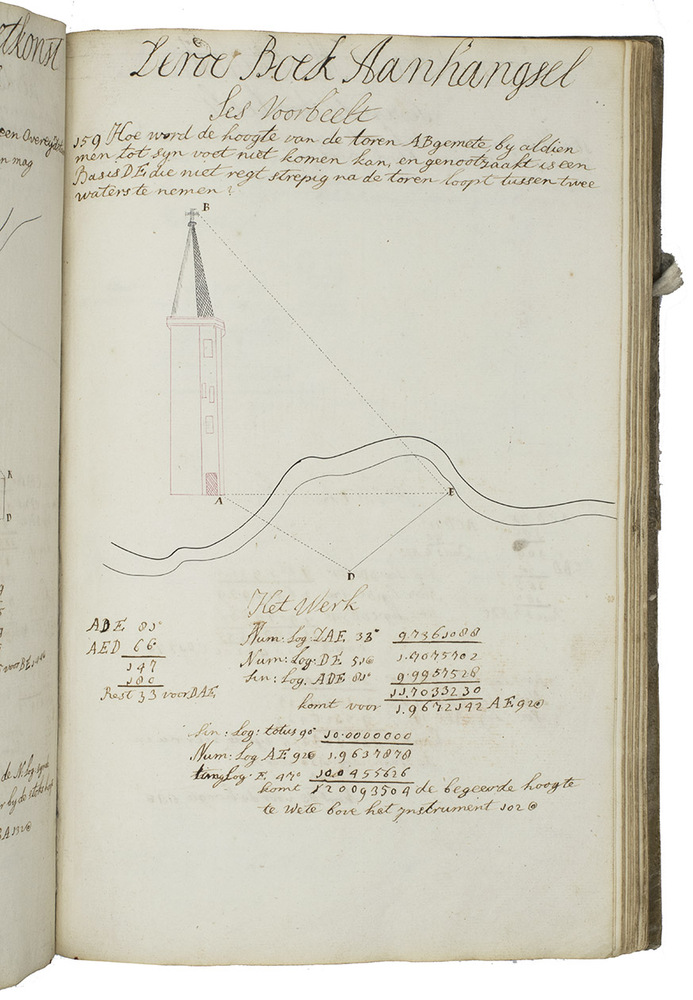 etkonst
een
n mag
Derde Boek Aanhangsel
Ses Voorbeelt
159 Hoe word de hoogte van de toren AB gemete, by aldien
men tot syn voet niet komen kan, en genootzaakt is een
Basis DE die niet regt strepig na de toren loopt tussen twee
waters te nemen?
B
A
E
D
K
D
Het Werk
ADE 81°
AED 66
147
180
Rest 33 voor DAE
Num: Log: DAE 33° 9.7361088
Num: Log: DE 51 1.7075702
Sin: Log: ADE 81° 9.9957528
11.7033230
komt voor 1.9672142 AE 92
Sin: Log: totus 90° 10.0000000
Num: Log AE 92 1.9637878
Log: E. 47° 10.0455626
komt 120093504 de begeerde hoogte
te Wete bove het ynstrument 102